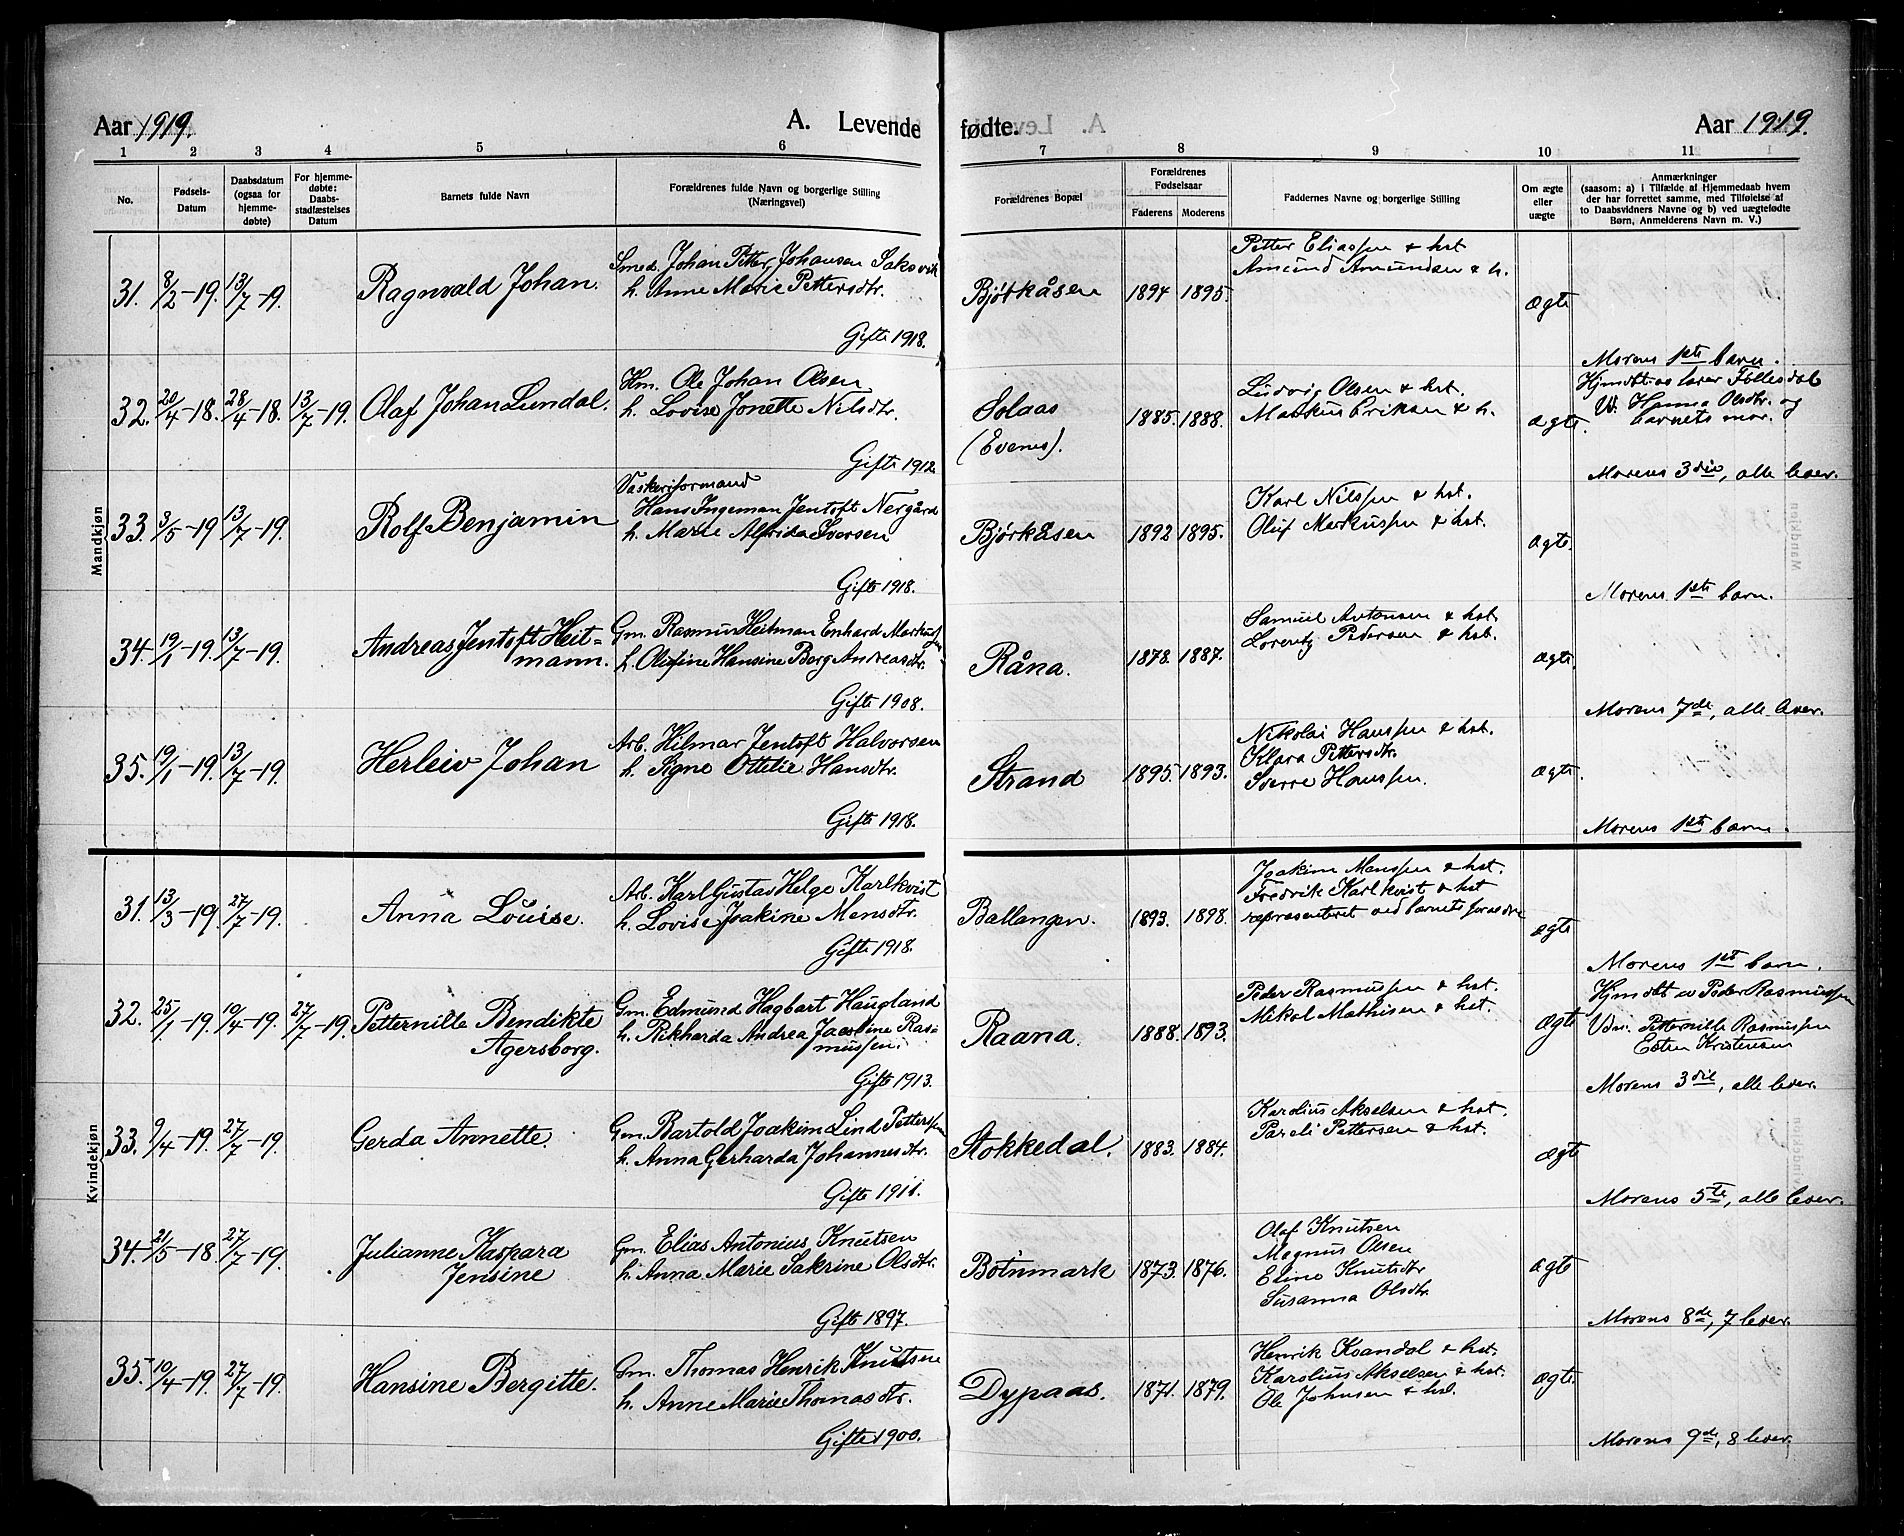 Aar 1919.
A. Levende fødte.
Aar 1919.
1 2 3 4 5 6 7 8 9 10 11
No.
Fødsels-
Datum
Daabsdatum
(ogsaa for
hjemme-
døbte)
For hjemme-
døbte:
Daabs-
stadfæstelses
Datum
Barnets fulde Navn
Forældrenes fulde Navn og borgerlige Stilling
(Næringsvei)
Forældrenes Bopæl
Forældrenes
Fødselsaar
Faderens Moderens
Faddernes Navne og borgerlige Stilling
Om ægte
eller
uægte
Anmærkninger
(saasom: a) i Tilfælde af Hjemmedaab hvem
der har forrettet samme, med Tilføielse af
to Daabsvidners Navne og b) ved uægtefødte
Børn, Anmelderens Navn m. V.)
Mandkjøn
31. 8/2-19. 13/7-19.
Ragnvald Johan.
Smed. Johan Petter Johansen Saksvik
h. Anne Marie Pettersdtr.
Gifte 1918.
Bjørkåsen 1894 1895.
Petter Eliassen & hst
Amund Amundsen & h.
ægte
Morens 1ste barn.
32. 20/4-18. 28/4-18. 13/7-19.
Olaf Johan Lundal.
Hm. Ole Johan Olsen
h. Lovise Jonette Nilsdtr.
Gifte 1912.
Solaas
(Evenes).
1885. 1888.
Ludvig Olsen & hst.
Markus Eriksen & h.
ægte.
Hjmdt. as lærer Føllesdal
W. Hanna Olsdtr. og
barnets mor.
Morens 3die, alle lever.
33. 3/5-19 13/7-19.
Rolf Benjamin
Vaskeriformand
Hans Ingeman Jentoft Nergård
h. Marie Alfrida Iversen
Gifte 1918.
Bjørkåsen 1892 1895.
Karl Nilssen & hst.
Oluf Markussen & hst.
ægte.
Morens 1ste barn.
34. 19/1-19. 13/7-19.
Andreas Jentoft Heit=
mann.
Gm. Rasmus Heitman Enhard Markussen
h. Olufine Hansine Berg Andreasdtr.
Gifte 1908.
Råna. 1878. 1887.
Samuel Antonsen & hst
Lorentz Pedersen & hst.
ægte.
Morens 7de, alle lever.
35. 19/1-19. 13/7-19.
Herleiv Johan
Arb. Hilmar Jentoft Halvorsen
h. Signe Ottelie Hansdtr.
Gifte 1918.
Strand 1895. 1893.
Nikolai Hanssen & hst.
Klara Pettersdtr.
Sverre Hanssen.
ægte.
Morens 1ste barn.
Kvindekjøn
31. 13/3-19. 27/7-19.
Anna Louise.
Arb. Karl Gustav Helge Karlkvist
h. Lovise Joakine Monsdtr.
Gifte 1918.
Ballangen. 1893. 1898.
Joakim Monssen & hst.
Fredrik Karlkvist & hst
representeret ved barnets foreldre
ægte
Morens 1ste barn.
32. 25/1-19. 19/4-19. 27/7-19.
Petternille Bendikte
Agersborg.
Gm. Edmund Hagbart Haugland
h. Rikharda Andrea Jacobine Ras=
mussen.
Gifte 1913.
Raana. 1888. 1893.
Peder Rasmussen & hst.
Mikal Mathisen & hst.
ægte
Hjmdbt av Peder Rasmussen
Vdn. Petternille Rasmussen
Kristensen
Morens 3die, alle lever.
33. 9/4-19. 27/7-19.
Gerda Annette.
Gm. Bartold Joakim Lind Pettersen
h. Anna Gerharda Johannesdtr.
Gifte 1911.
Stokkedal. 1883. 1884.
Karolius Akselsen & hst.
Pareli Pettersen & hst.
ægte
Morens 5te, alle lever.
34. 21/5-18 27/7-19.
Julianne Kaspara
Jensine
Gm. Elias Antonius Knutsen
h. Anna Marie Sakrine Olsdtr.
Gifte 1897.
Botnmark 1873. 1876.
Olaf Knutsen
Magnus Olsen
Eline Knutsdtr
Susanna Olsdtr.
ægte
Morens 8de, 7 lever.
35. 19/4-19. 27/7-19.
Hansine Bergitte.
Gm. Thomas Henrik Knutsen
h. Anne Marie Thomasdtr.
Gifte 1900.
Dypaas. 1871. 1879.
Henrik Kvandal & hst.
Karolius Akselsen & hst.
Ole Johnsen & hst.
ægte.
Morens 9de, 8 lever.